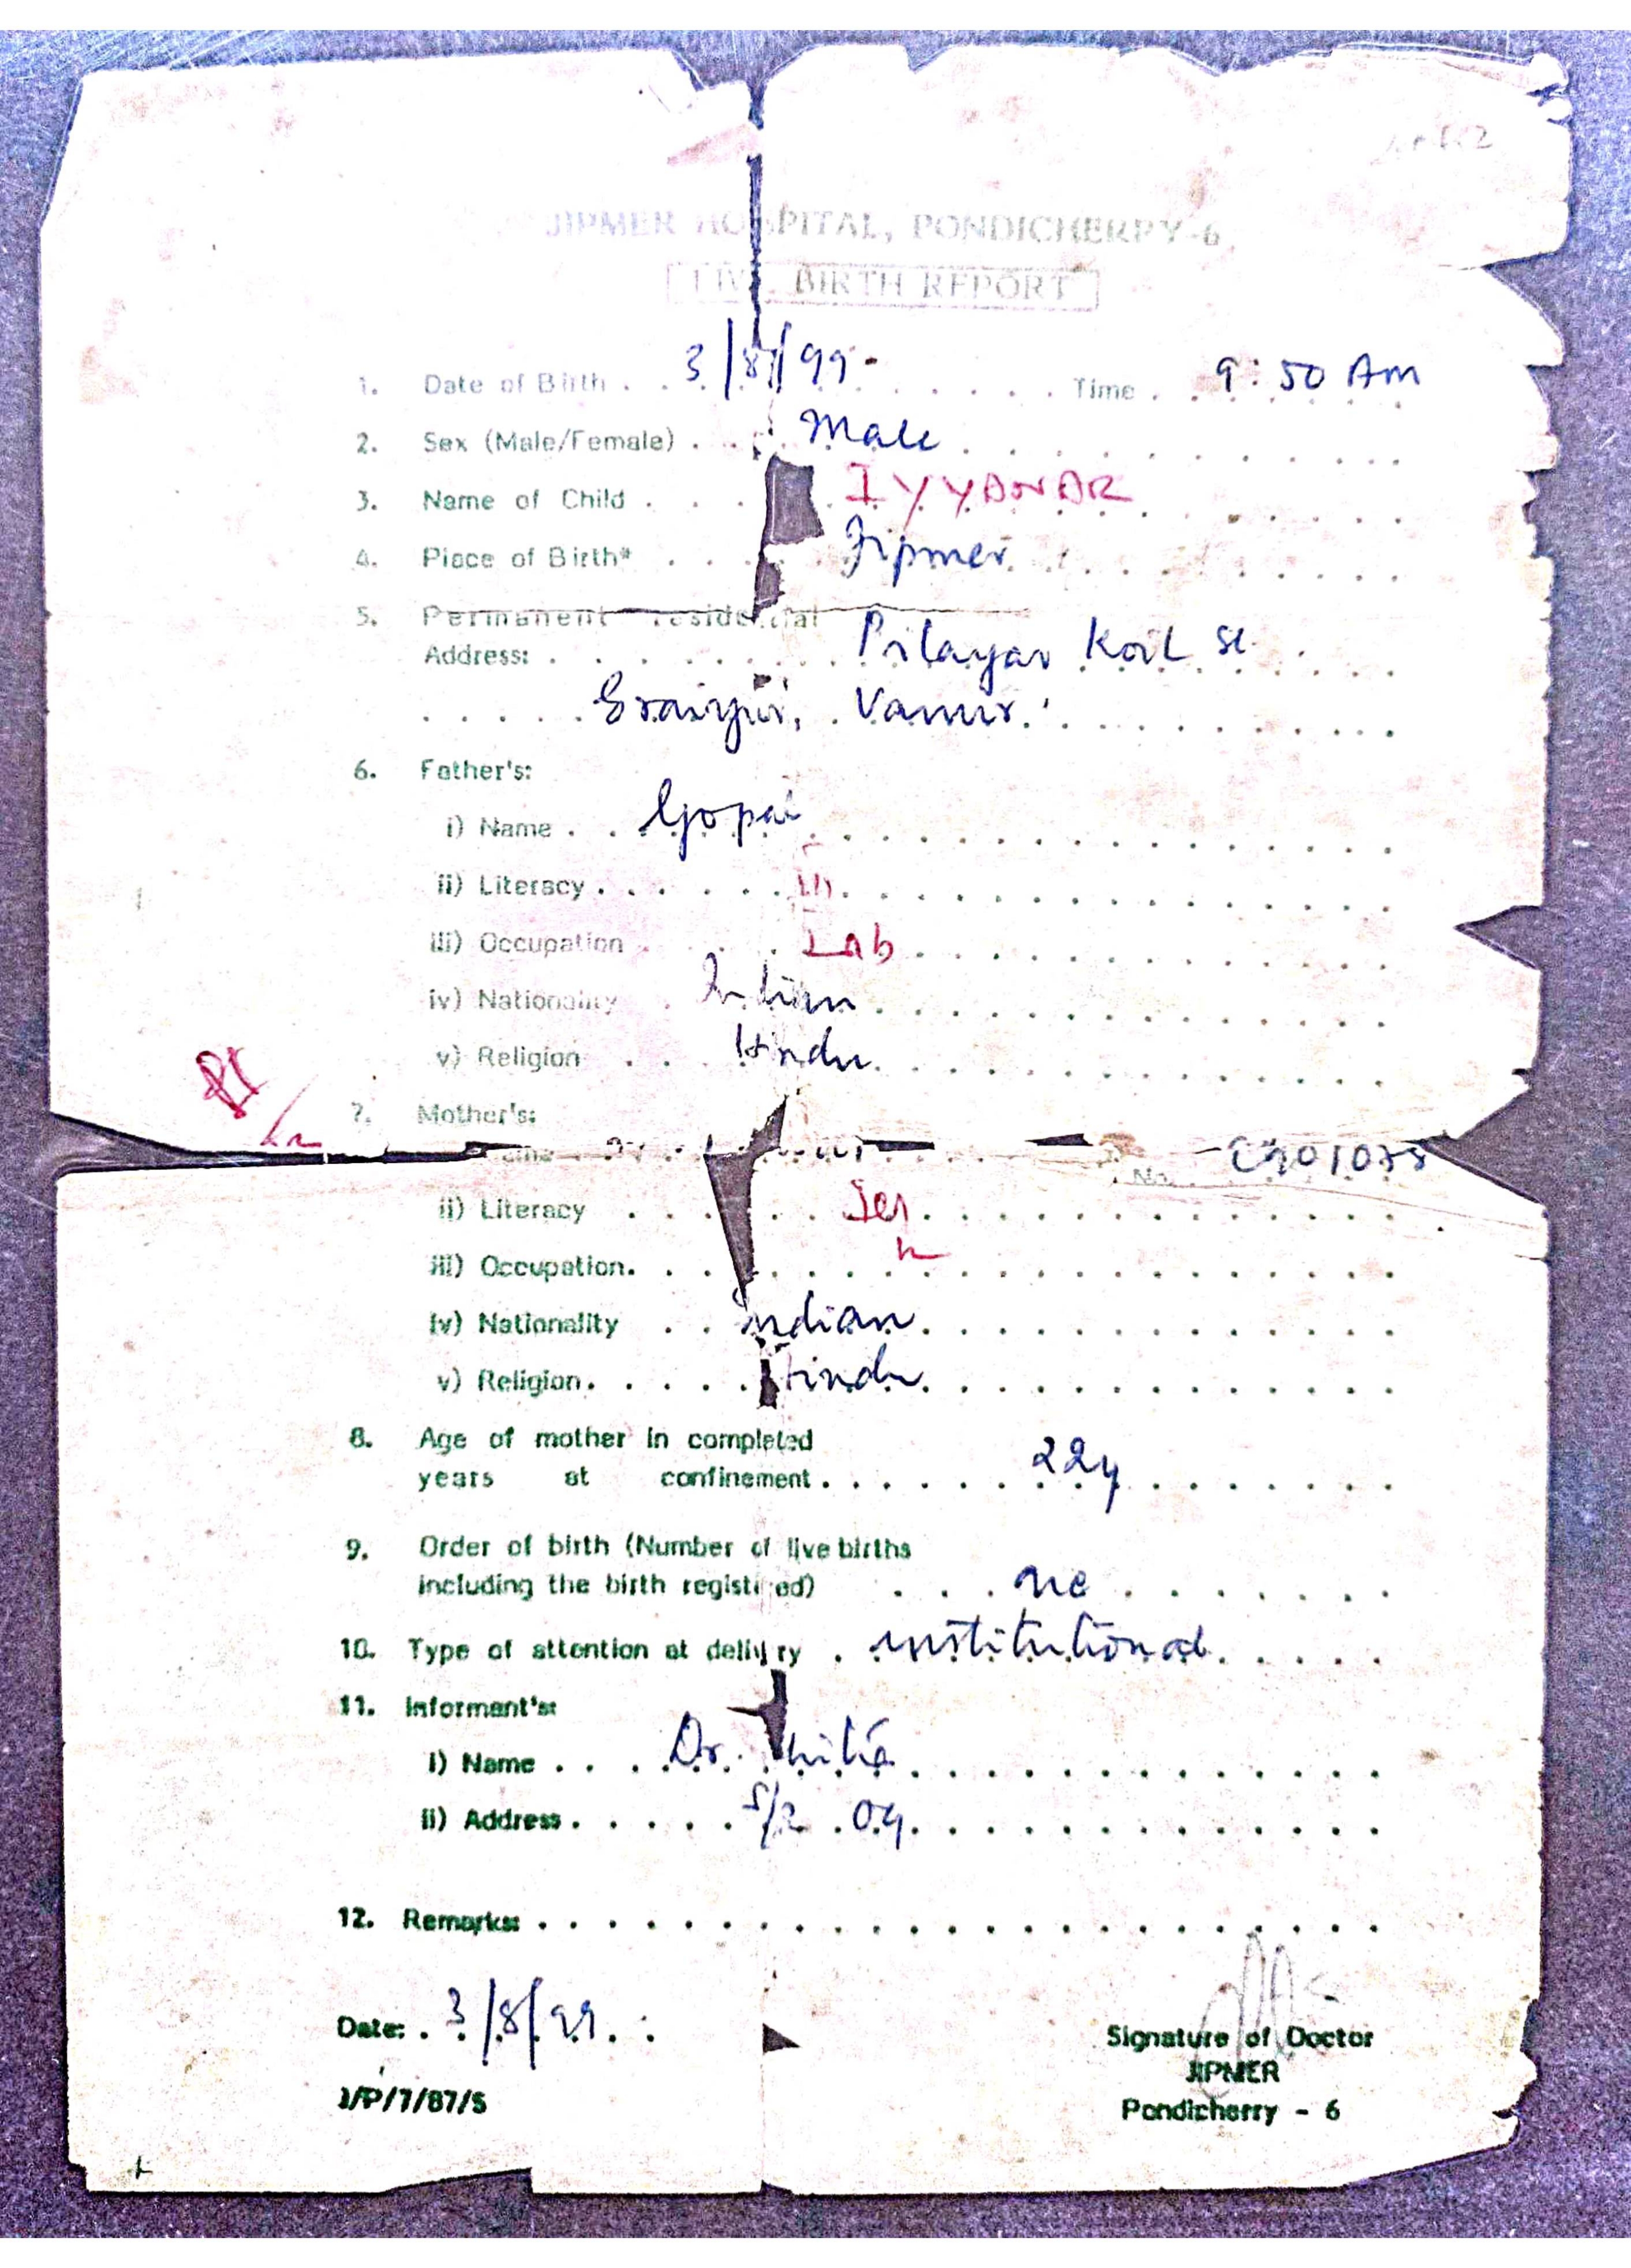 JIPMER HOSPITAL, PONDICHERRY-6
LIVE BIRTH REPORT
1. Date of Birth . . 3/8/99 . . . . Time . 9:50 Am
2. Sex (Male/Female) . . Male
3. Name of Child . . . IYYANAR
4. Place of Birth* . . . Jipmer
5. Permanent residential
Address: . . . Pilayar Koil St
Vanur
6. Father's:
i) Name . . Gopal
ii) Literacy . . .
iii) Occupation . . . Lab
iv) Nationality . Indian
v) Religion . . . Hindu
7. Mother's:
No.
ii) Literacy . . .
iii) Occupation. . . .
iv) Nationality . . Indian
v) Religion. . . . Hindu
8. Age of mother in completed
years at confinement . . . 22y
9. Order of birth (Number of live births
including the birth registered) . . .
10. Type of attention at delivery . institutional
11. Informant's:
i) Name . . . Dr.
ii) Address . . . .
12. Remarks: . . . .
Date: . 3/8/99.
Signature of Doctor
JIPMER
J/P/7/87/5
Pondicherry - 6